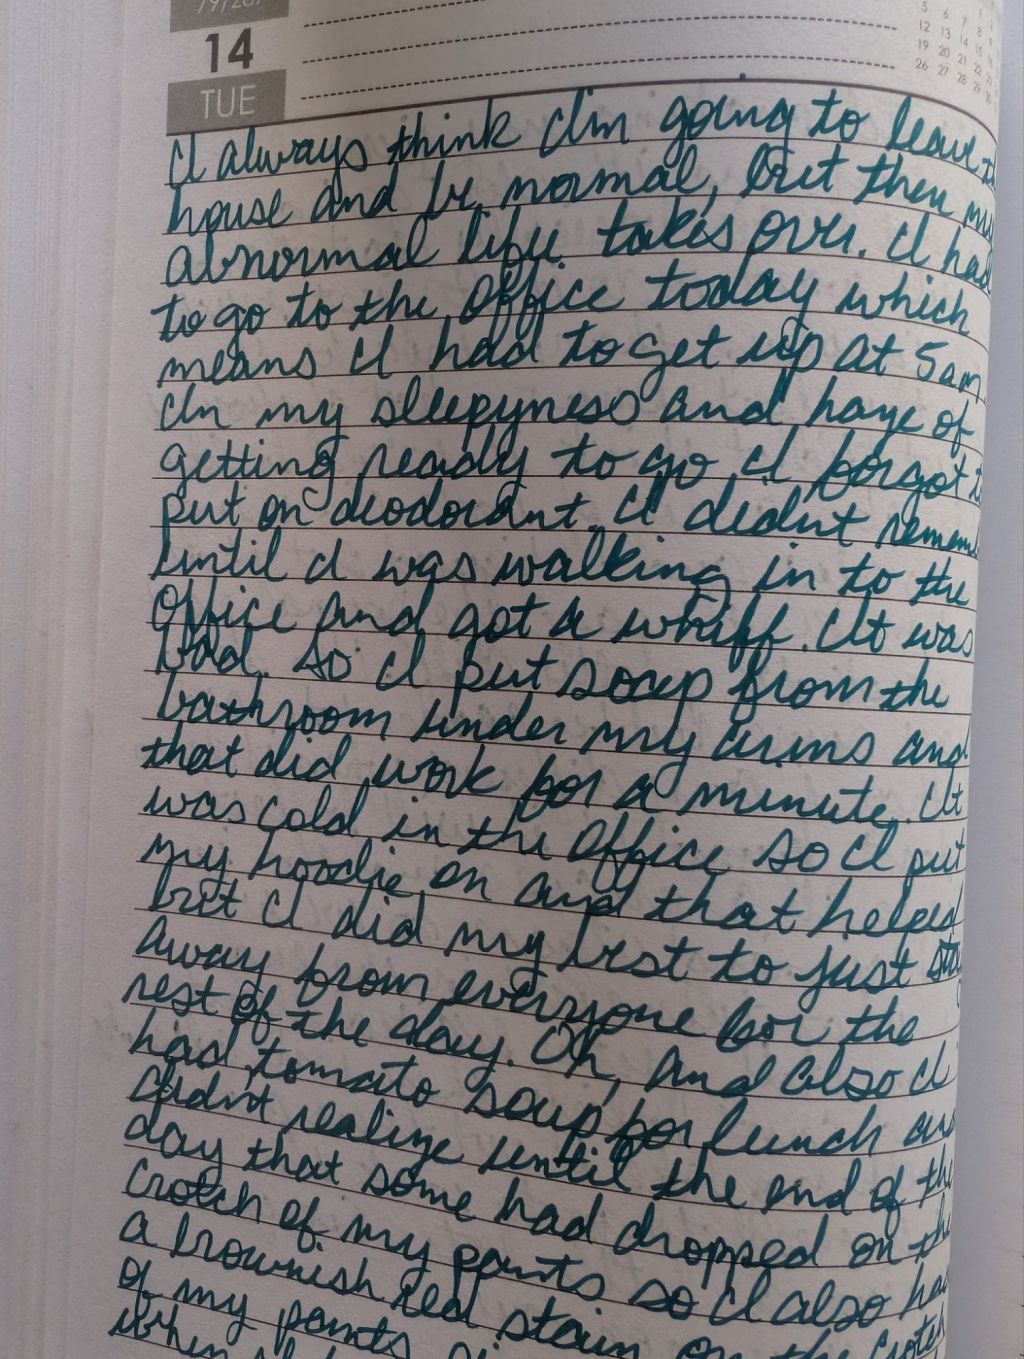 14
TUE
5 6 7
12 13 14
19 20 21 22
26 27 28 29 30
I always think I'm going to leave
house and be normal, but then my
abnormal life takes over. I had
to go to the office today which
means I had to get up at 5am
In my sleepyness and haze of
getting ready to go I forgot
put on deodorant. I didnt remem
until I was walking in to the
office and got a whiff. It was
bad. So I put soap from the
bathroom under my arms and
that did work for a minute. It
was cold in the office so I put
my hoodie on and that helped
but I did my best to just
away from everyone for the
rest of the day. Oh, and also I
had tomato soup for lunch
didnt realize until the end of the
day that some had dropped on the
crotch of my pants so I also
a brownish red stain on the crotch
of my pants
when